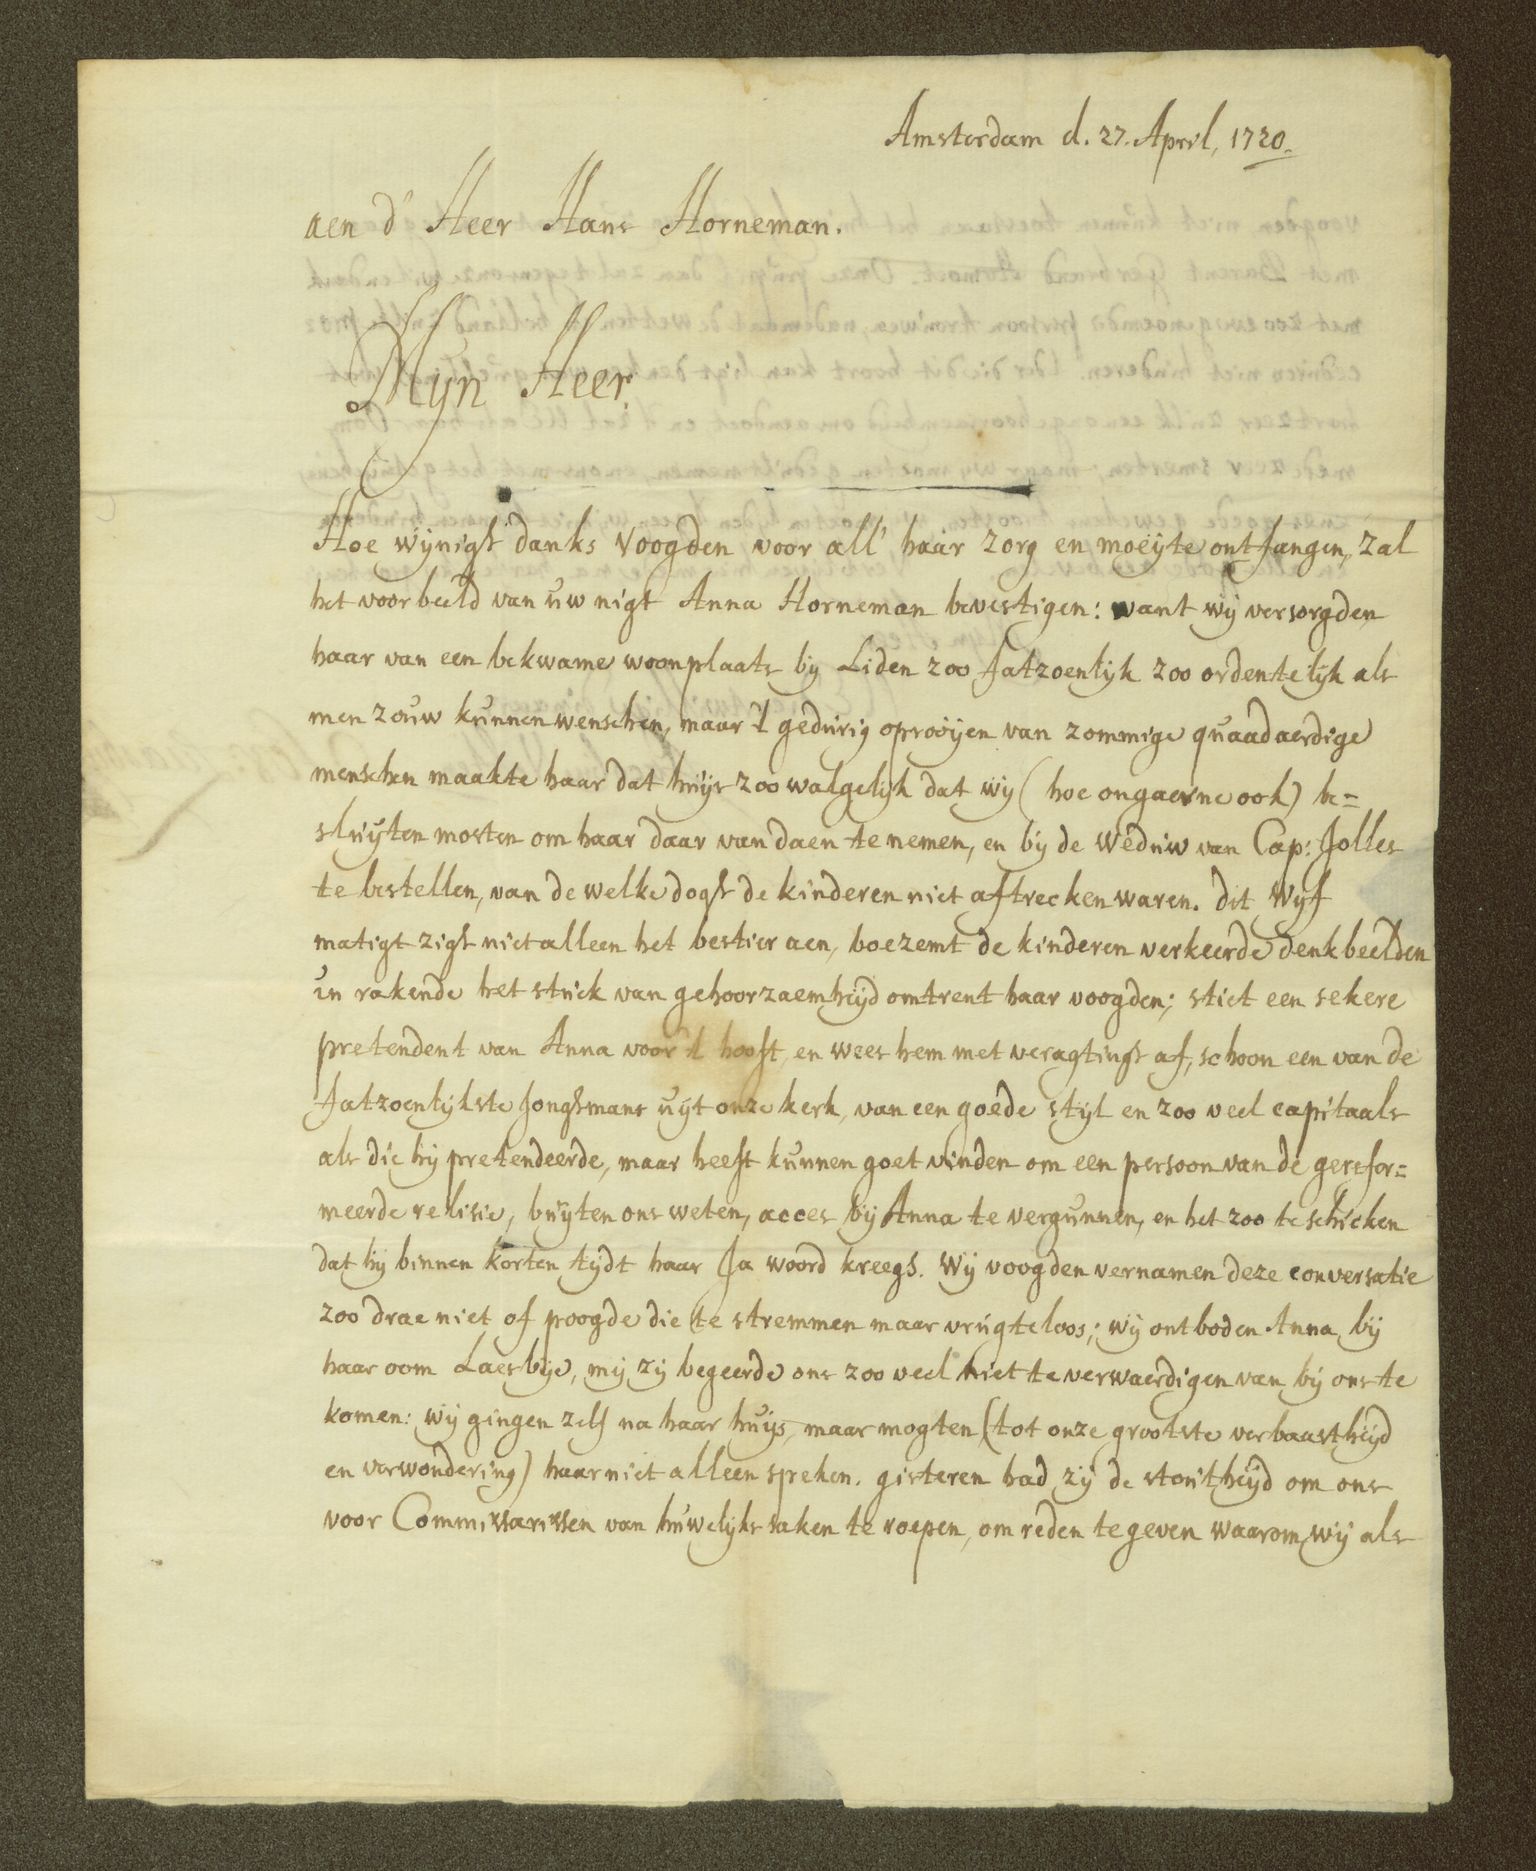 Amsterdam d. 27. April, 1720.
aen d' Heer Hans Horneman.
Myn Heer
Hoe wijnigh danks voogden voor all' haar zorg en moeyte ontfangen, zal
het voorbeeld van uw nigt Anna Horneman bevestigen: want wij versorgden
haar van een bekwame woonplaats bij Liden zoo fatzoenlijk zoo ordentelijk als
men zouw kunnen wenschen, maar 't gedurig oprooijen van zommige quaadaerdige
menschen maakte haar dat huijs zoo walgelijk dat wij (hoe ongaerne ook) be=
sluijten mosten om haar daar van daen te nemen, en bij de weduw van Cap: Jolles
te bestellen, van de welke dogh de kinderen niet aftrecken waren. dit wijf
matigt zigh niet alleen het bestier aen, boezemt de kinderen verkeerde denkbeelden
in rakende het stuck van gehoorzaemheijd omtrent haar voogden; stiet een sekere
pretendent van Anna voor 't hooft, en wees hem met veragtingh af, schoon een van de
fatzoenlijkste Jonghmans uijt onze kerk, van een goede stijl en zoo veel capitaals
als die hij pretendeerde, maar heeft kunnen goet vinden om een persoon van de gerefor=
meerde relisie, buijten ons weten, acces bij Anna te vergunnen, en het zoo te schicken
dat hij binnen korten tijdt haar Ja woord kreegh. Wij voogden vernamen deze conversatie
zoo drae niet of poogde die te stremmen maar vrugteloos; wij ontboden Anna bij
haar oom Laesbije, mij zij begeerde ons zoo veel niet te verwaerdigen van bij ons te
komen: wij gingen zelf na haar huijs, maar mogten (tot onze grootste verbaastheijd
en verwondering) haar niet alleen spreken. gisteren had zij de stoutheijd om ons
voor Commissarissen van huwelijks saken te roepen, om reden te geven waarom wij als